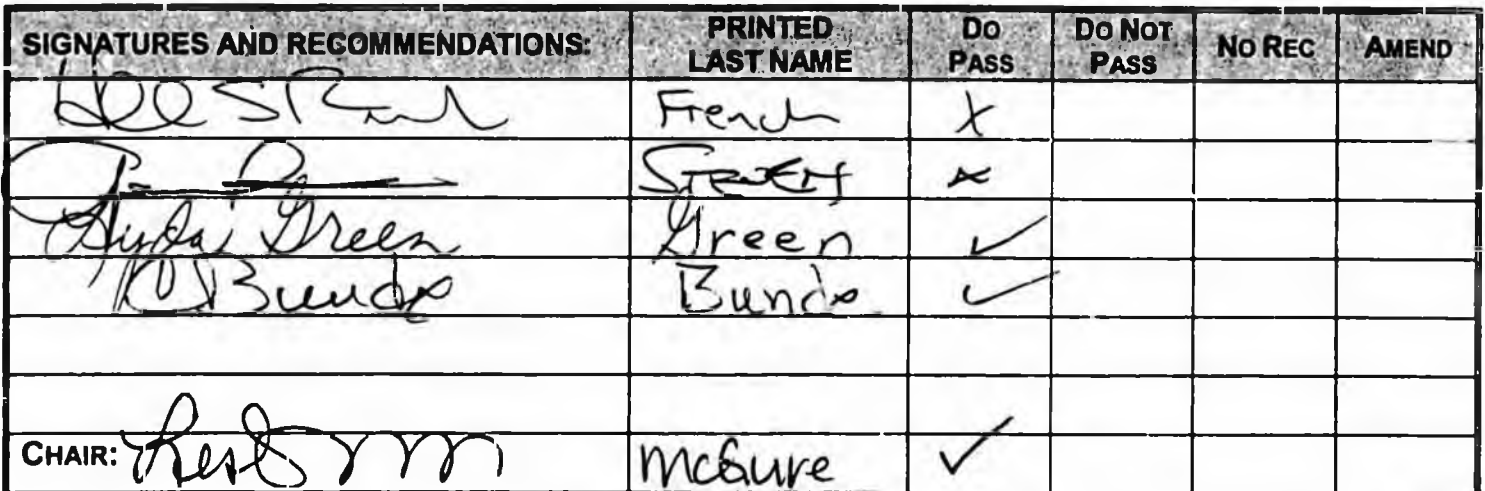 SIGNATURES AND RECOMMENDATIONS: PRINTED LAST NAME DO PASS DO NOT PASS NO REC AMEND
French X
x
Lynda Green Green ✓
Bunde Bunde ✓
CHAIR: McGuire ✓